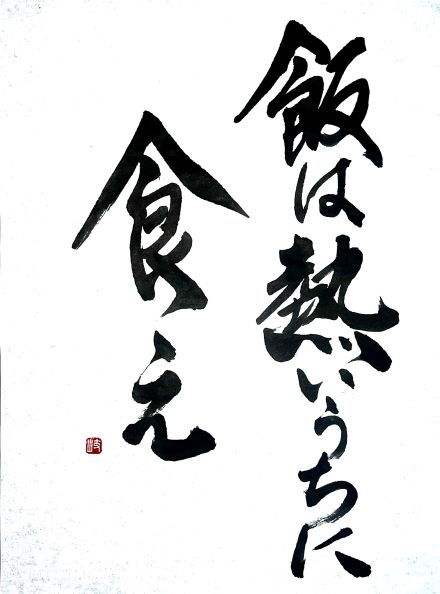 飯は熱いうちに
食え